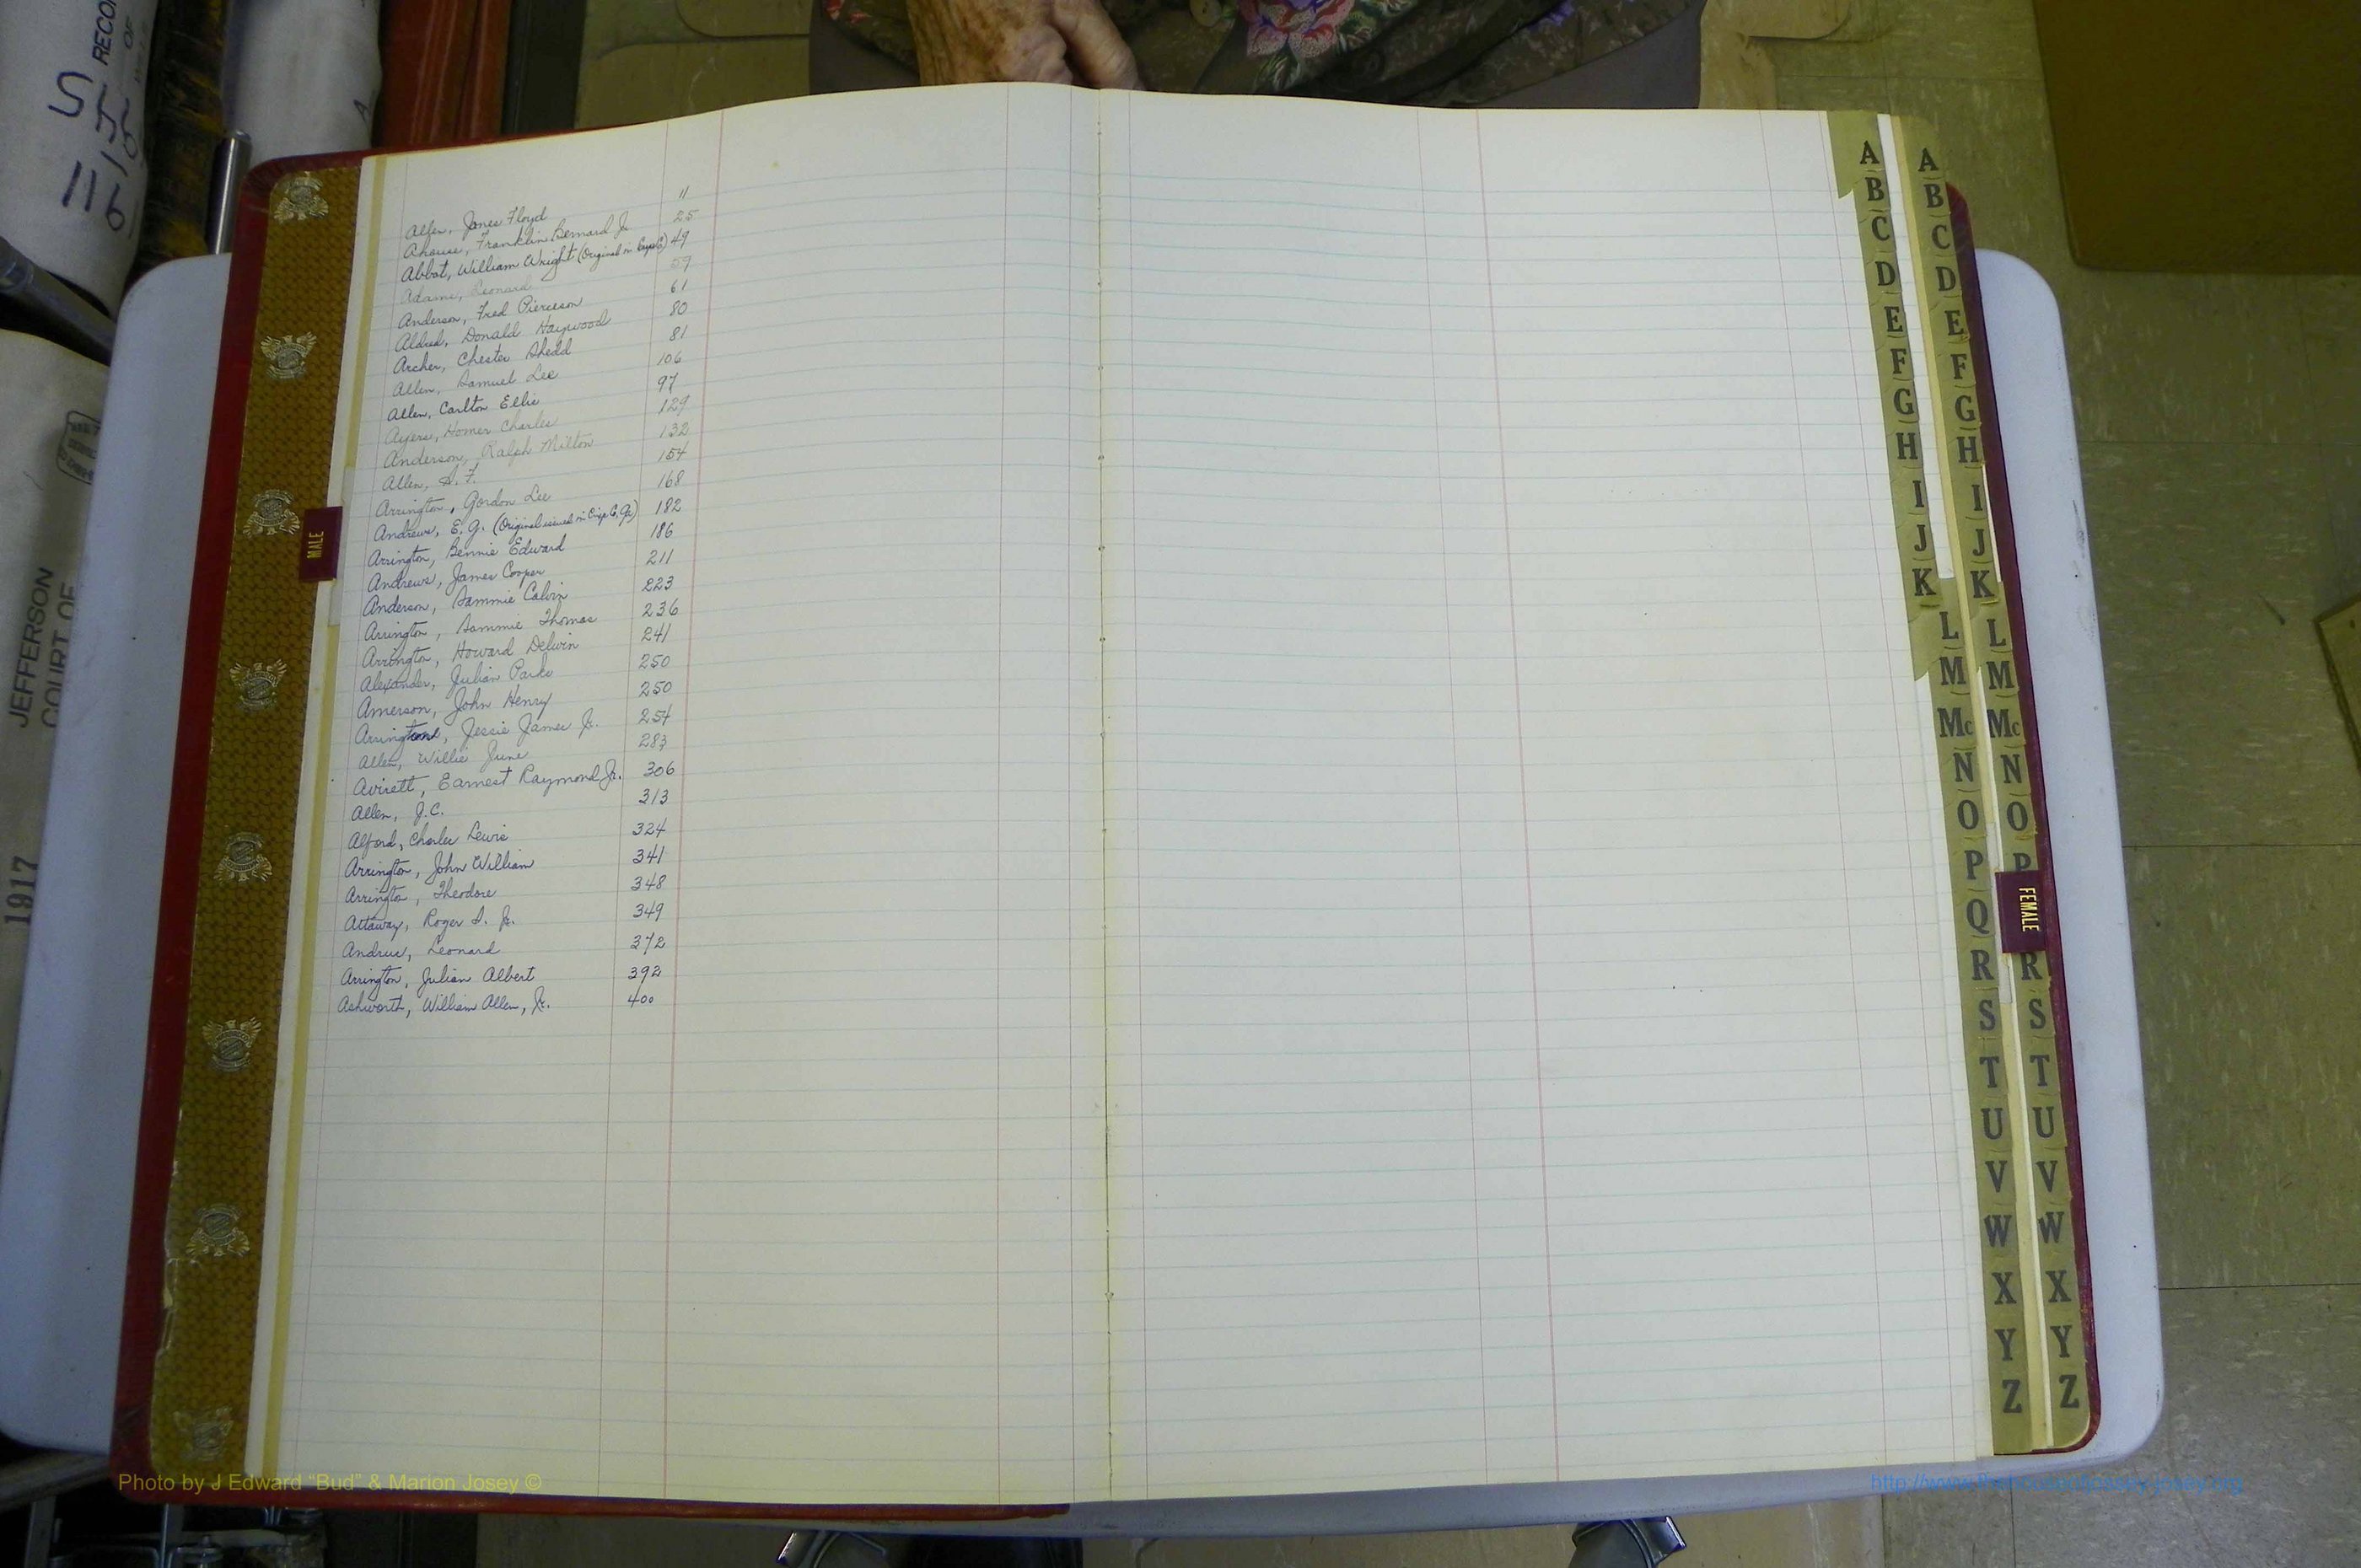 Alfer, James Floyd 11
Franklin Bernard Jr. 25
Abbot, William Wright (Original in 49
Adams, Leonard 59
Anderson, Fred Pierceson 61
Aldred, Donald Haywood 80
Archer, Chester Shedd 81
Allen, Samuel Lee 106
Allen, Carlton Ellis 97
Ayers, Homer Charles 129
Anderson, Ralph Milton 132
Allen, S. F. 154
Arrington, Gordon Lee 168
Andrews, E. G. (Original issued in 182
Arrington, Bennie Edward 186
Andrews, James Cooper 211
Anderson, Sammie Calvin 223
Arrington, Sammie Thomas 236
Arrington, Howard Delwin 241
Alexander, Julian Parks 250
Amerson, John Henry 250
Jessie James Jr. 254
Allen, Willie June 283
Avirett, Earnest Raymond Jr. 306
Allen, J.C. 313
Alford, Charles Lewis 324
Arrington, John William 341
Arrington, Theodore 348
Attaway, Roger S. Jr. 349
Andrus, Leonard 372
Arrington, Julian Albert 392
Ashworth, William Allen, Jr. 400
MALE
FEMALE
A
B
C
D
E
F
G
H
I
J
K
L
M
Mc
N
O
P
Q
R
S
T
U
V
W
X
Y
Z
A
B
C
D
E
F
G
H
I
J
K
L
M
Mc
N
O
P
R
S
T
U
V
W
X
Y
Z
JEFFERSON
COURT OF
1917
Photo by J Edward “Bud” & Marion Josey ©